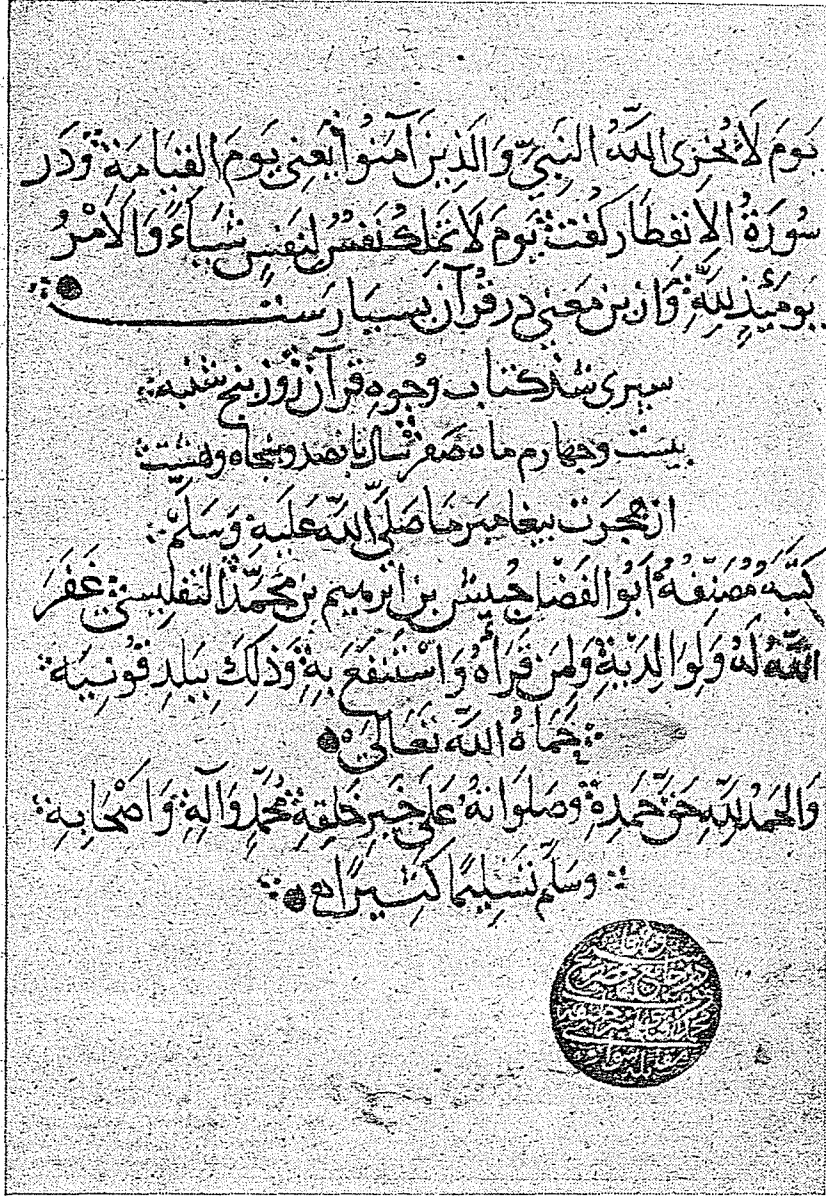 يَومَ لَا يُخزِى اللّهُ النَّبِىَّ وَالَّذِينَ آمَنُوا يَعنِى يَومَ القِيَامَةِ وَدَر
سُورَةُ الاِنفِطَار كَفت يَومَ لَا تَملِكُ نَفسٌ لِنَفسٍ شَياءً وَالاَمْرُ
يَومَئِذٍ لِلّهِ وَازين مَعنى در قُرآن بسيارست
سپرى شد كتاب وُجوه قرآن روز پنج شنبه
بيست وچهارم ماه صَفَر سال پانصد وپنجاه وهشت
از هجرَت پيغامبر ما صَلَّى اللّه عَلَيهِ وَسَلَّم
كَتَبَهُ مُصَنِّفُهُ اَبُوالفَضل حُبَيش بن ابرهيم بن مُحَمَّد التفلِيسى غَفَرَ
اللّهُ لَهُ وَلِوَالِدَيهِ وَلِمَن قَرَأَهُ وَاسْتَنفَعَ بِهِ وَذلِكَ بِبَلَدِ قُونِيَة
حَمَاهُ اللّه تَعَالَى
وَالحَمدُ لِلّهِ حَقَّ حَمدِهِ وصَلَوَاتهُ عَلَى خَيرِ خَلقِهِ مُحَمَّدٍ وَآلِهِ وَاَصْحَابِهِ
وَسَلَّمَ تَسلِيمًا كَثِيرًا